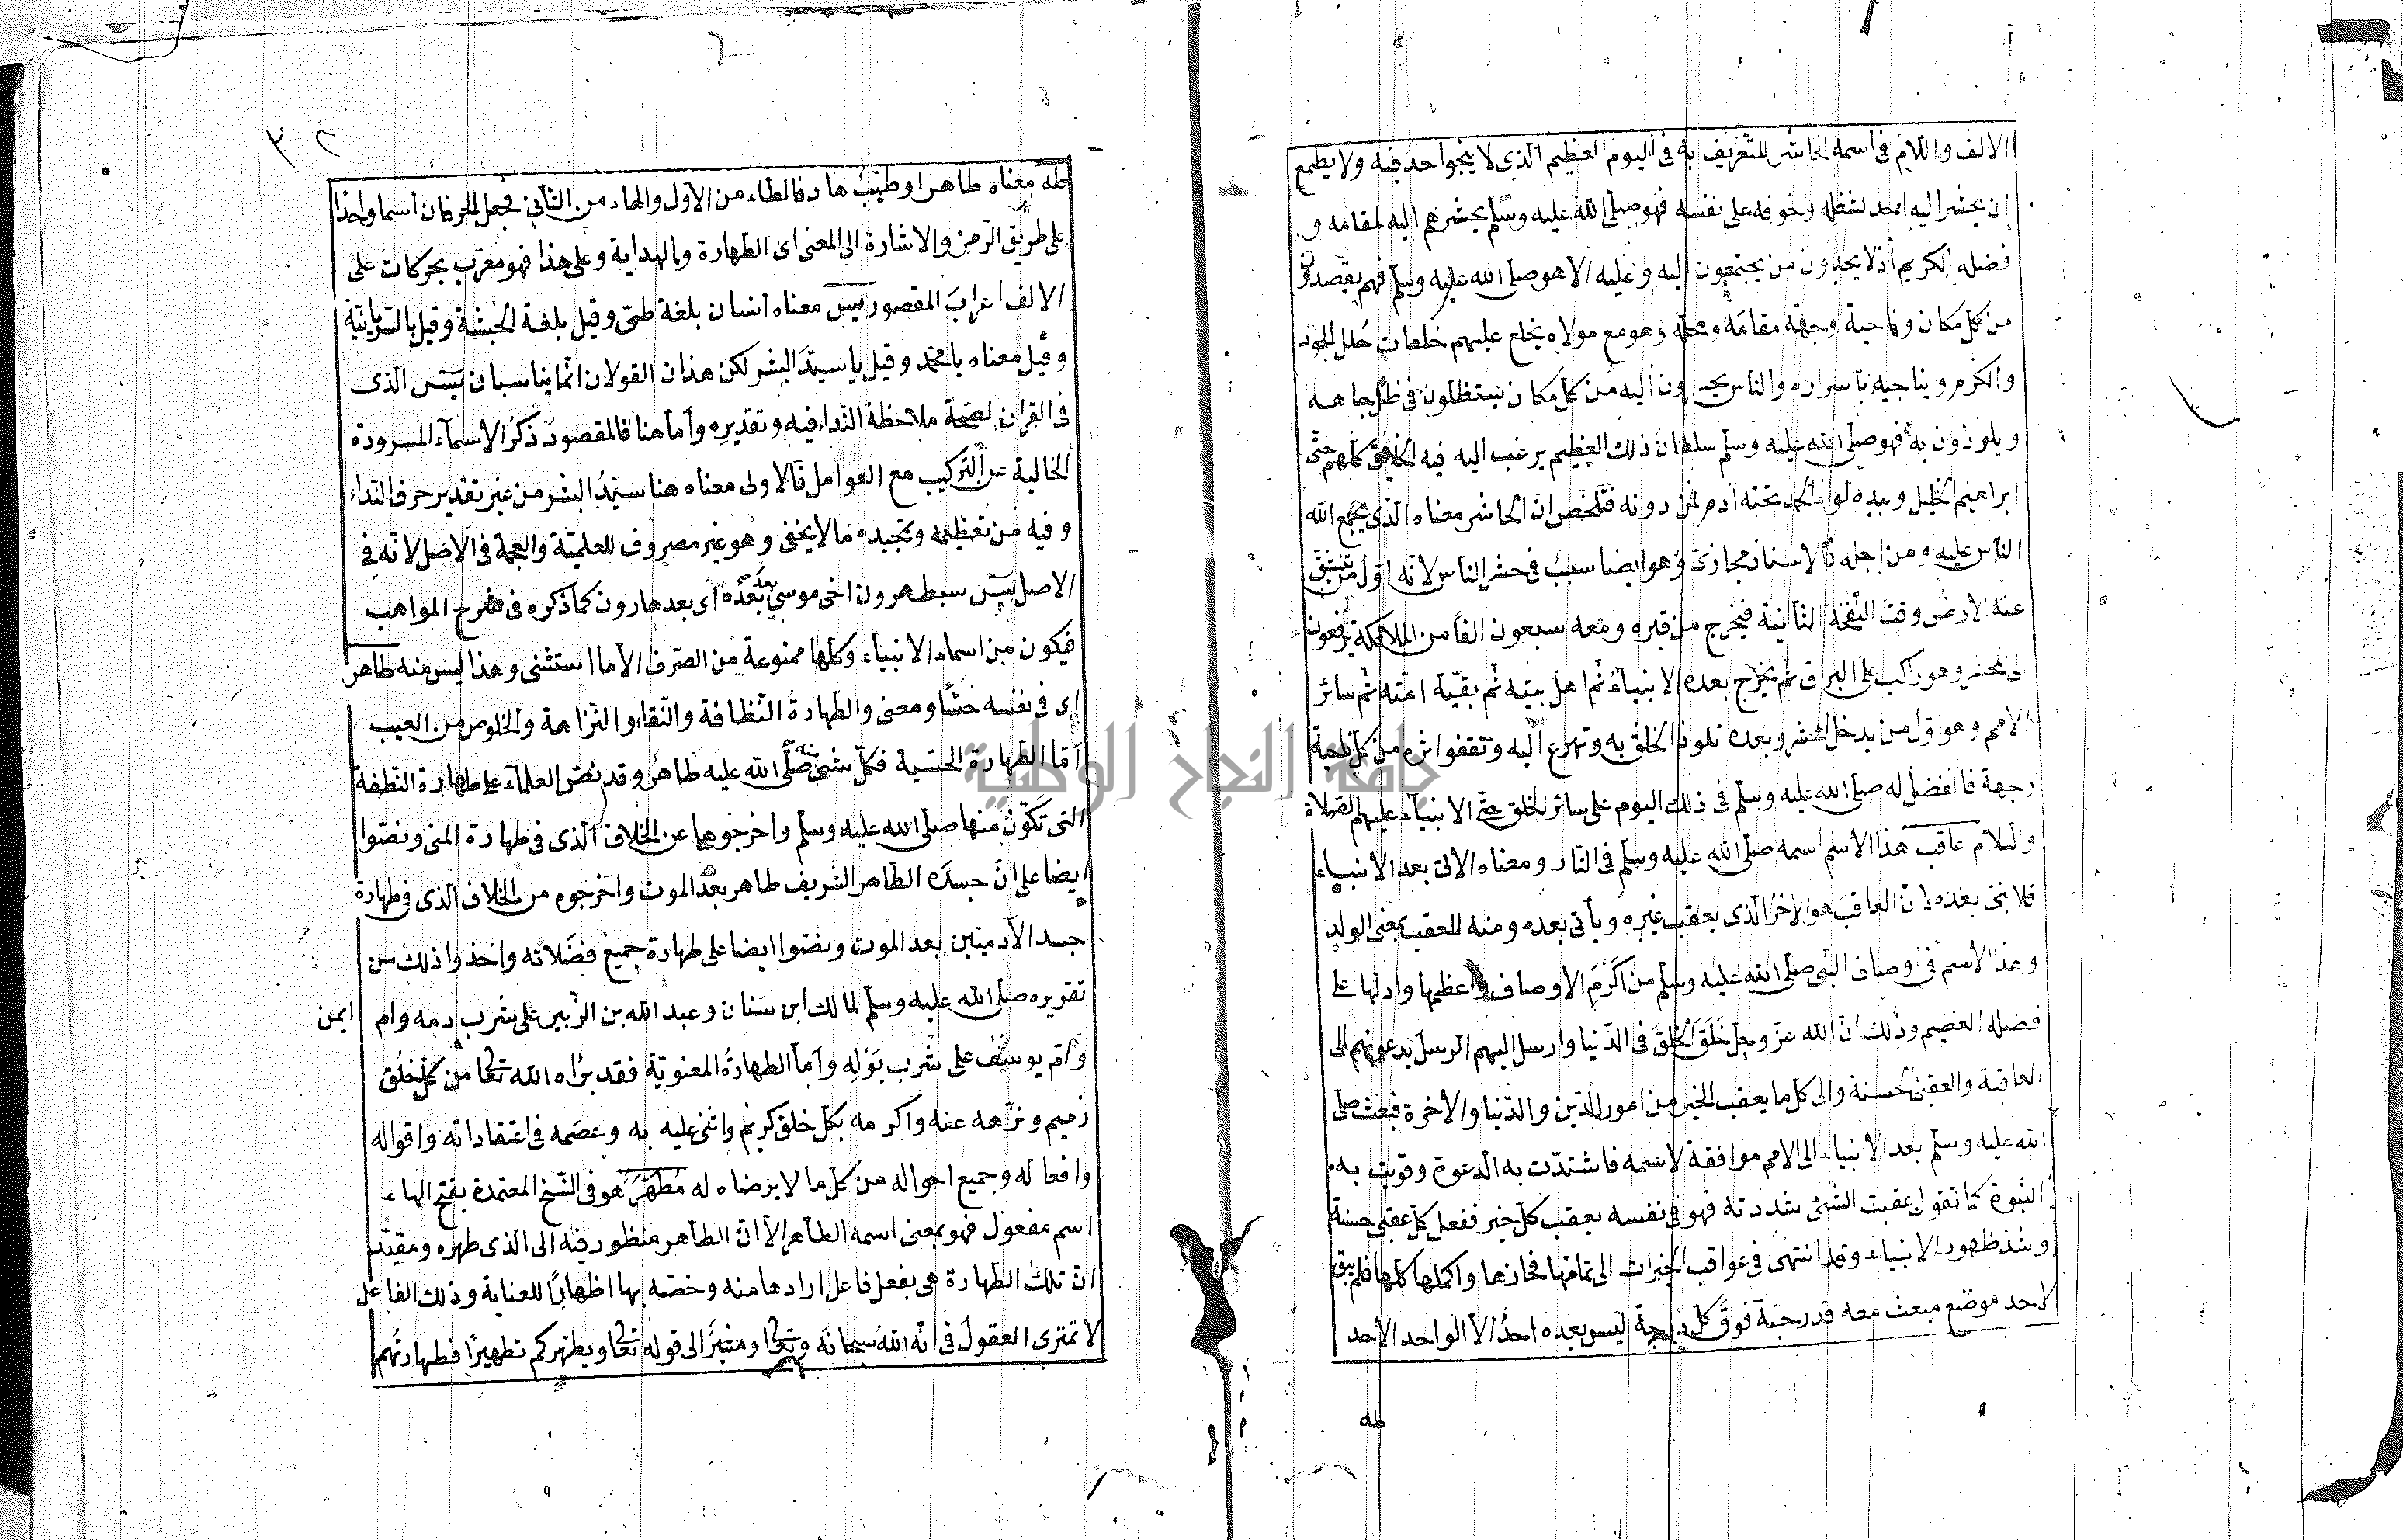 الالف واللام فى اسمه الحاشر للتعريف به فى اليوم العظيم الذى لا ينجو احد فيه ولا يطمع
ان يحشر اليه احد لشغله وخوفه على نفسه فهو صلى الله عليه وسلم يحشرهم اليه لمقامه و
فضله الكريم اذ لا يجدون من يجتمعون اليه وعليه الا هو صلى الله عليه وسلم فهم يقصدون
من كل مكان وناحية وجهة مقامه ومحله وهو مع مولاه يخلع عليهم خلعات حلل الجود
والكرم ويناجيه باسراره والناس يحشرون اليه من كل مكان يستظلون فى ظل جاهه
ويلوذون به فهو صلى الله عليه وسلم سلطان ذلك العظيم يرغب اليه فيه الخلق كلهم حتى
ابراهيم الخليل وبيده لواء الحمد تحته آدم فمن دونه فتلخص ان الحاشر معناه الذى يجمع الله
الناس عليه ومن اجله فالاسناد مجازى وهو ايضا سبب فى حشر الناس لانه اول من تنشق
عنه الارض وقت النفخة الثانية فيخرج من قبره ومعه سبعون الفا من الملائكة يزفونه
الى المحشر وهو راكب على البراق ثم يخرج بعده الانبياء ثم اهل بيته ثم بقية امته ثم سائر
الامم وهو اول من يدخل المحشر وبعده تلوذ الخلق به وتهرع اليه وتقفوا اثره من كل ناحية
وجهة فالفضل له صلى الله عليه وسلم فى ذلك اليوم على سائر الخلق حتى الانبياء عليهم الصلاة
والسلام عاقب هذا الاسم اسمه صلى الله عليه وسلم فى النار ومعناه الآتى بعد الانبياء
فلا نبى بعده لان العاقب هو الآخر الذى يعقب غيره ويأتى بعده ومنه العقب بمعنى الولد
وهذا الاسم فى اوصاف النبى صلى الله عليه وسلم من اكرم الاوصاف واعظمها وادلها على
فضله العظيم وذلك ان الله عز وجل خلق الخلق فى الدنيا وارسل اليهم الرسل يدعونهم الى
العاقبة والعقبى الحسنة والى كل ما يعقب الخير من امور الدين والدنيا والآخرة فبعث صلى
الله عليه وسلم بعد الانبياء الى الامم موافقة لاسمه فاشتدت به الدعوة وقويت به
النبوة كما تقول عقبت الشئ شددته فهو فى نفسه يعقب كل خير ففعل كل عقبى حسنة
وشد ظهور الانبياء وقد انتهى فى عواقب الخيرات الى تمامها فحازها واكملها كلها فلم يبق
لاحد موضع مبعث معه قدرجته فوق كل درجة ليس بعده احد الا الواحد الاحد
طه
٣٢
طه معناه طاهر او طيب هاد فالطاء من الاول والهاء من الثانى فجعل الحرفان اسما واحدا
على طريق الرمز والاشارة الى المعنى اى الطهارة والهداية وعلى هذا فهو معرب بحركات على
الالف اعراب المقصور يس معناه انسان بلغة طى وقيل بلغة الحبشة وقيل بالسريانية
وقيل معناه يا محمد وقيل يا سيد البشر لكن هذان القولان انما يناسبان يس الذى
فى القران لصحة ملاحظة النداء فيه وتقديره وأما هنا فالمقصود ذكر الاسماء المسرودة
الخالية عن التركيب مع العوامل فالاولى معناه هنا سيد البشر من غير تقدير حرف النداء
وفيه من تعظيمه وتمجيده ما لا يخفى وهو غير مصروف للعلمية والعجمة فى الاصل لانه فى
الاصل يس سبط هرون اخى موسى بعده اى بعد هارون كما ذكره فى شرح المواهب
فيكون من اسماء الانبياء وكلها ممنوعة من الصرف الا ما استثنى وهذا ليس منه طاهر
اى فى نفسه حسًّا ومعنى والطهارة النظافة والنقاء والنزاهة والخلوص من العيب
أما الطهارة الحسية فكل شئ منه صلى الله عليه طاهر وقد نص العلماء على طهارة النطفة
التى تكون منها صلى الله عليه وسلم واخرجوها عن الخلاف الذى فى طهارة المنى ونصوا
ايضا على ان جسده الطاهر الشريف طاهر بعد الموت واخرجوه من الخلاف الذى فى طهارة
جسد الآدميين بعد الموت ونصوا ايضا على طهارة جميع فضلاته واخذوا ذلك من
تقريره صلى الله عليه وسلم لمالك ابن سنان وعبد الله بن الزبير على شرب دمه وام ايمن
وام يوسف على شرب بوله وأما الطهارة المعنوية فقد براه الله تعا من كل خلق
ذميم ونزهه عنه واكرمه بكل خلق كريم واثنى عليه به وعصمه فى اعتقاداته واقواله
وافعاله وجميع احواله من كل ما لا يرضاه له مطهر هو فى النسخ المعتمدة بفتح الهاء
اسم مفعول فهو بمعنى اسمه الطاهر الا ان الطاهر منظور فيه الى الذى طهره ومقيد
ان تلك الطهارة هى بفعل فاعل ارادها منه وخصه بها اظهارًا للعناية وذلك الفاعل
لا تمترى العقول فى انه الله سبحانه وتعا ومشير الى قوله تعا ويطهركم تطهيرًا فطهارتهم
جامعة النجاح الوطنية